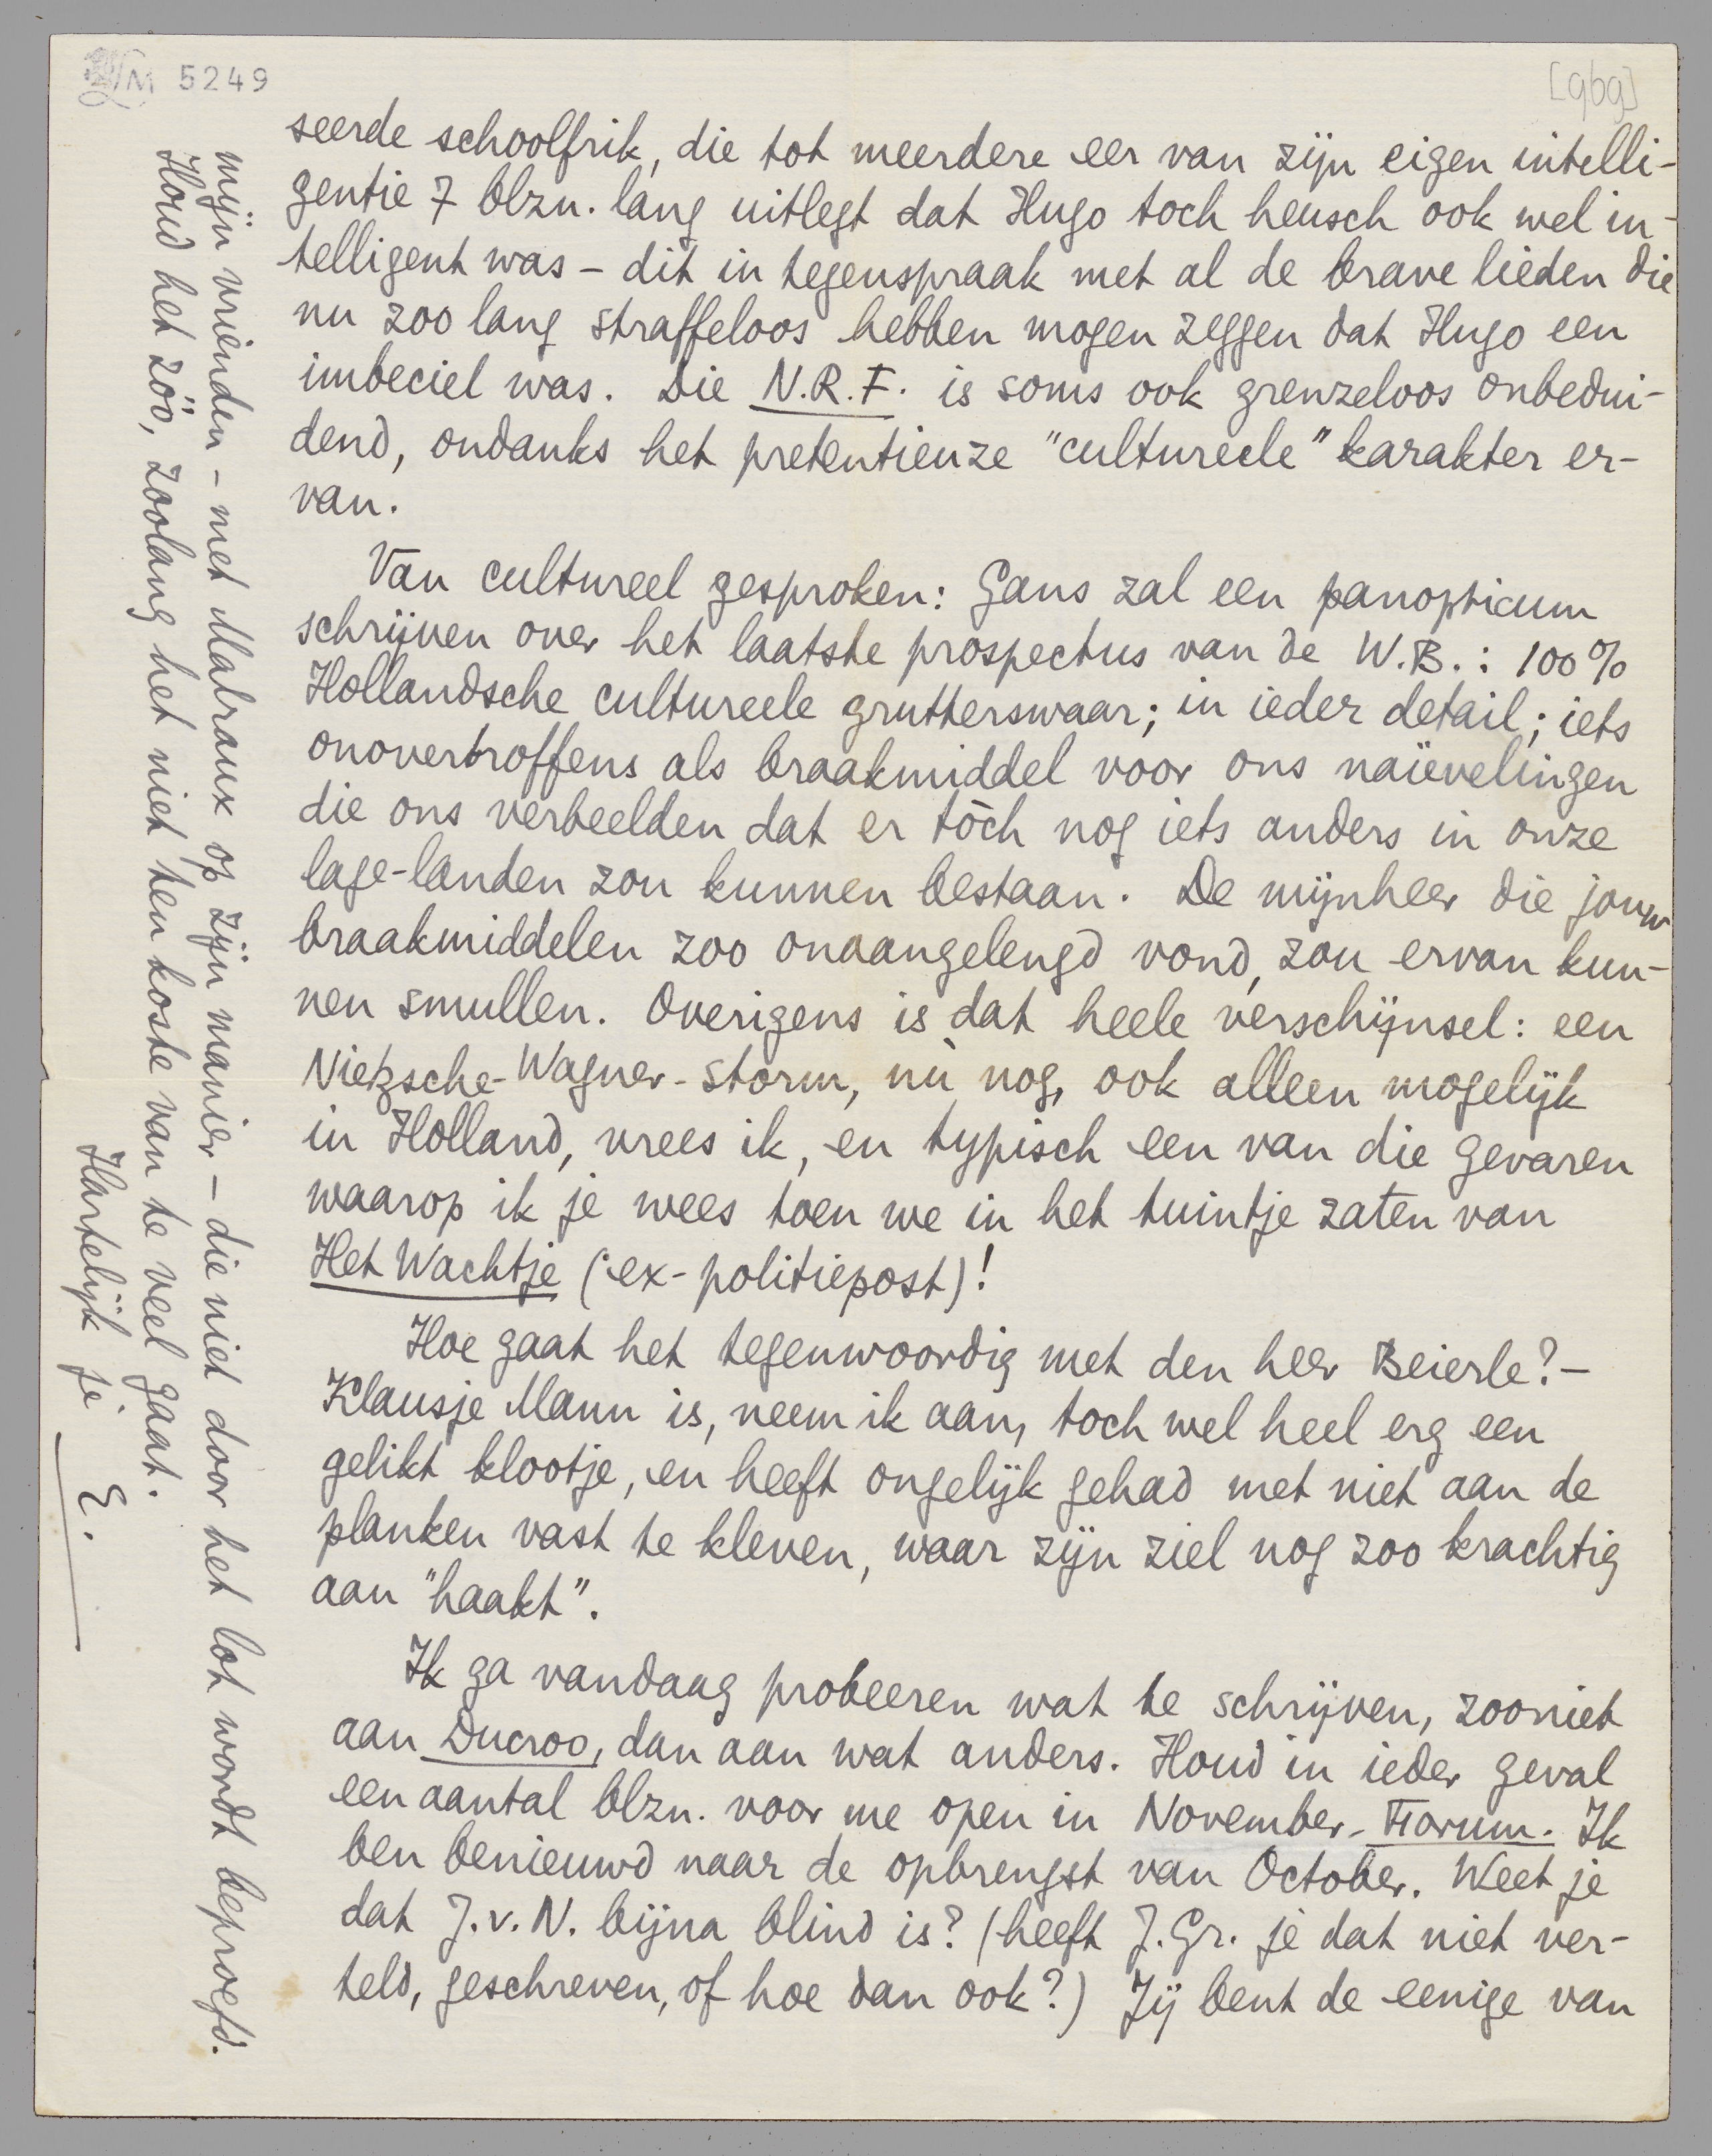 LM 5249
[969]
seerde schoolfrik, die tot meerdere eer van zijn eigen intelli-
gentie 7 blzn. lang uitlegt dat Hugo toch heusch ook wel in-
telligent was - dit in tegenspraak met al de brave lieden die
nu zoo lang straffeloos hebben mogen zeggen dat Hugo een
imbeciel was. Die N.R.F. is soms ook grenzeloos onbedui-
dend, ondanks het pretentieuze "cultureele" karakter er-
van.
Van cultureel gesproken: Gans zal een panopticum
schrijven over het laatste prospectus van de W.B.: 100%
Hollandsche cultureele grutterswaar; in ieder detail; iets
onovertroffens als braakmiddel voor ons naïevelingen
die ons verbeelden dat er tòch nog iets anders in onze
lage-landen zou kunnen bestaan. De mijnheer die jouw
braakmiddelen zoo onaangelengd vond, zou ervan kun-
nen smullen. Overigens is dat heele verschijnsel: een
Nietzsche-Wagner-storm, nù nog, ook alleen mogelijk
in Holland, vrees ik, en typisch een van die gevaren
waarop ik je wees toen we in het tuintje zaten van
Het Wachtje (ex-politiepost)!
Hoe gaat het tegenwoordig met den heer Beierle? -
Klausje Mann is, neem ik aan, toch wel heel erg een
gelikt klootje, en heeft ongelijk gehad met niet aan de
planken vast te kleven, waar zijn ziel nog zoo krachtig
aan "haakt".
Ik ga vandaag probeeren wat te schrijven, zooniet
aan Ducroo, dan aan wat anders. Houd in ieder geval
een aantal blzn. voor me open in November-Forum. Ik
ben benieuwd naar de opbrengst van October. Weet je
dat J.v.N. bijna blind is? (heeft J.Gr. je dat niet ver-
teld, geschreven, of hoe dan ook?) Jij bent de eenige van
mijn vrienden - met Malraux op zijn manier - die niet door het lot wordt beproefd.
Houd het zóó, zoolang het niet ten koste van te veel gaat.
Hartelijk je
E.